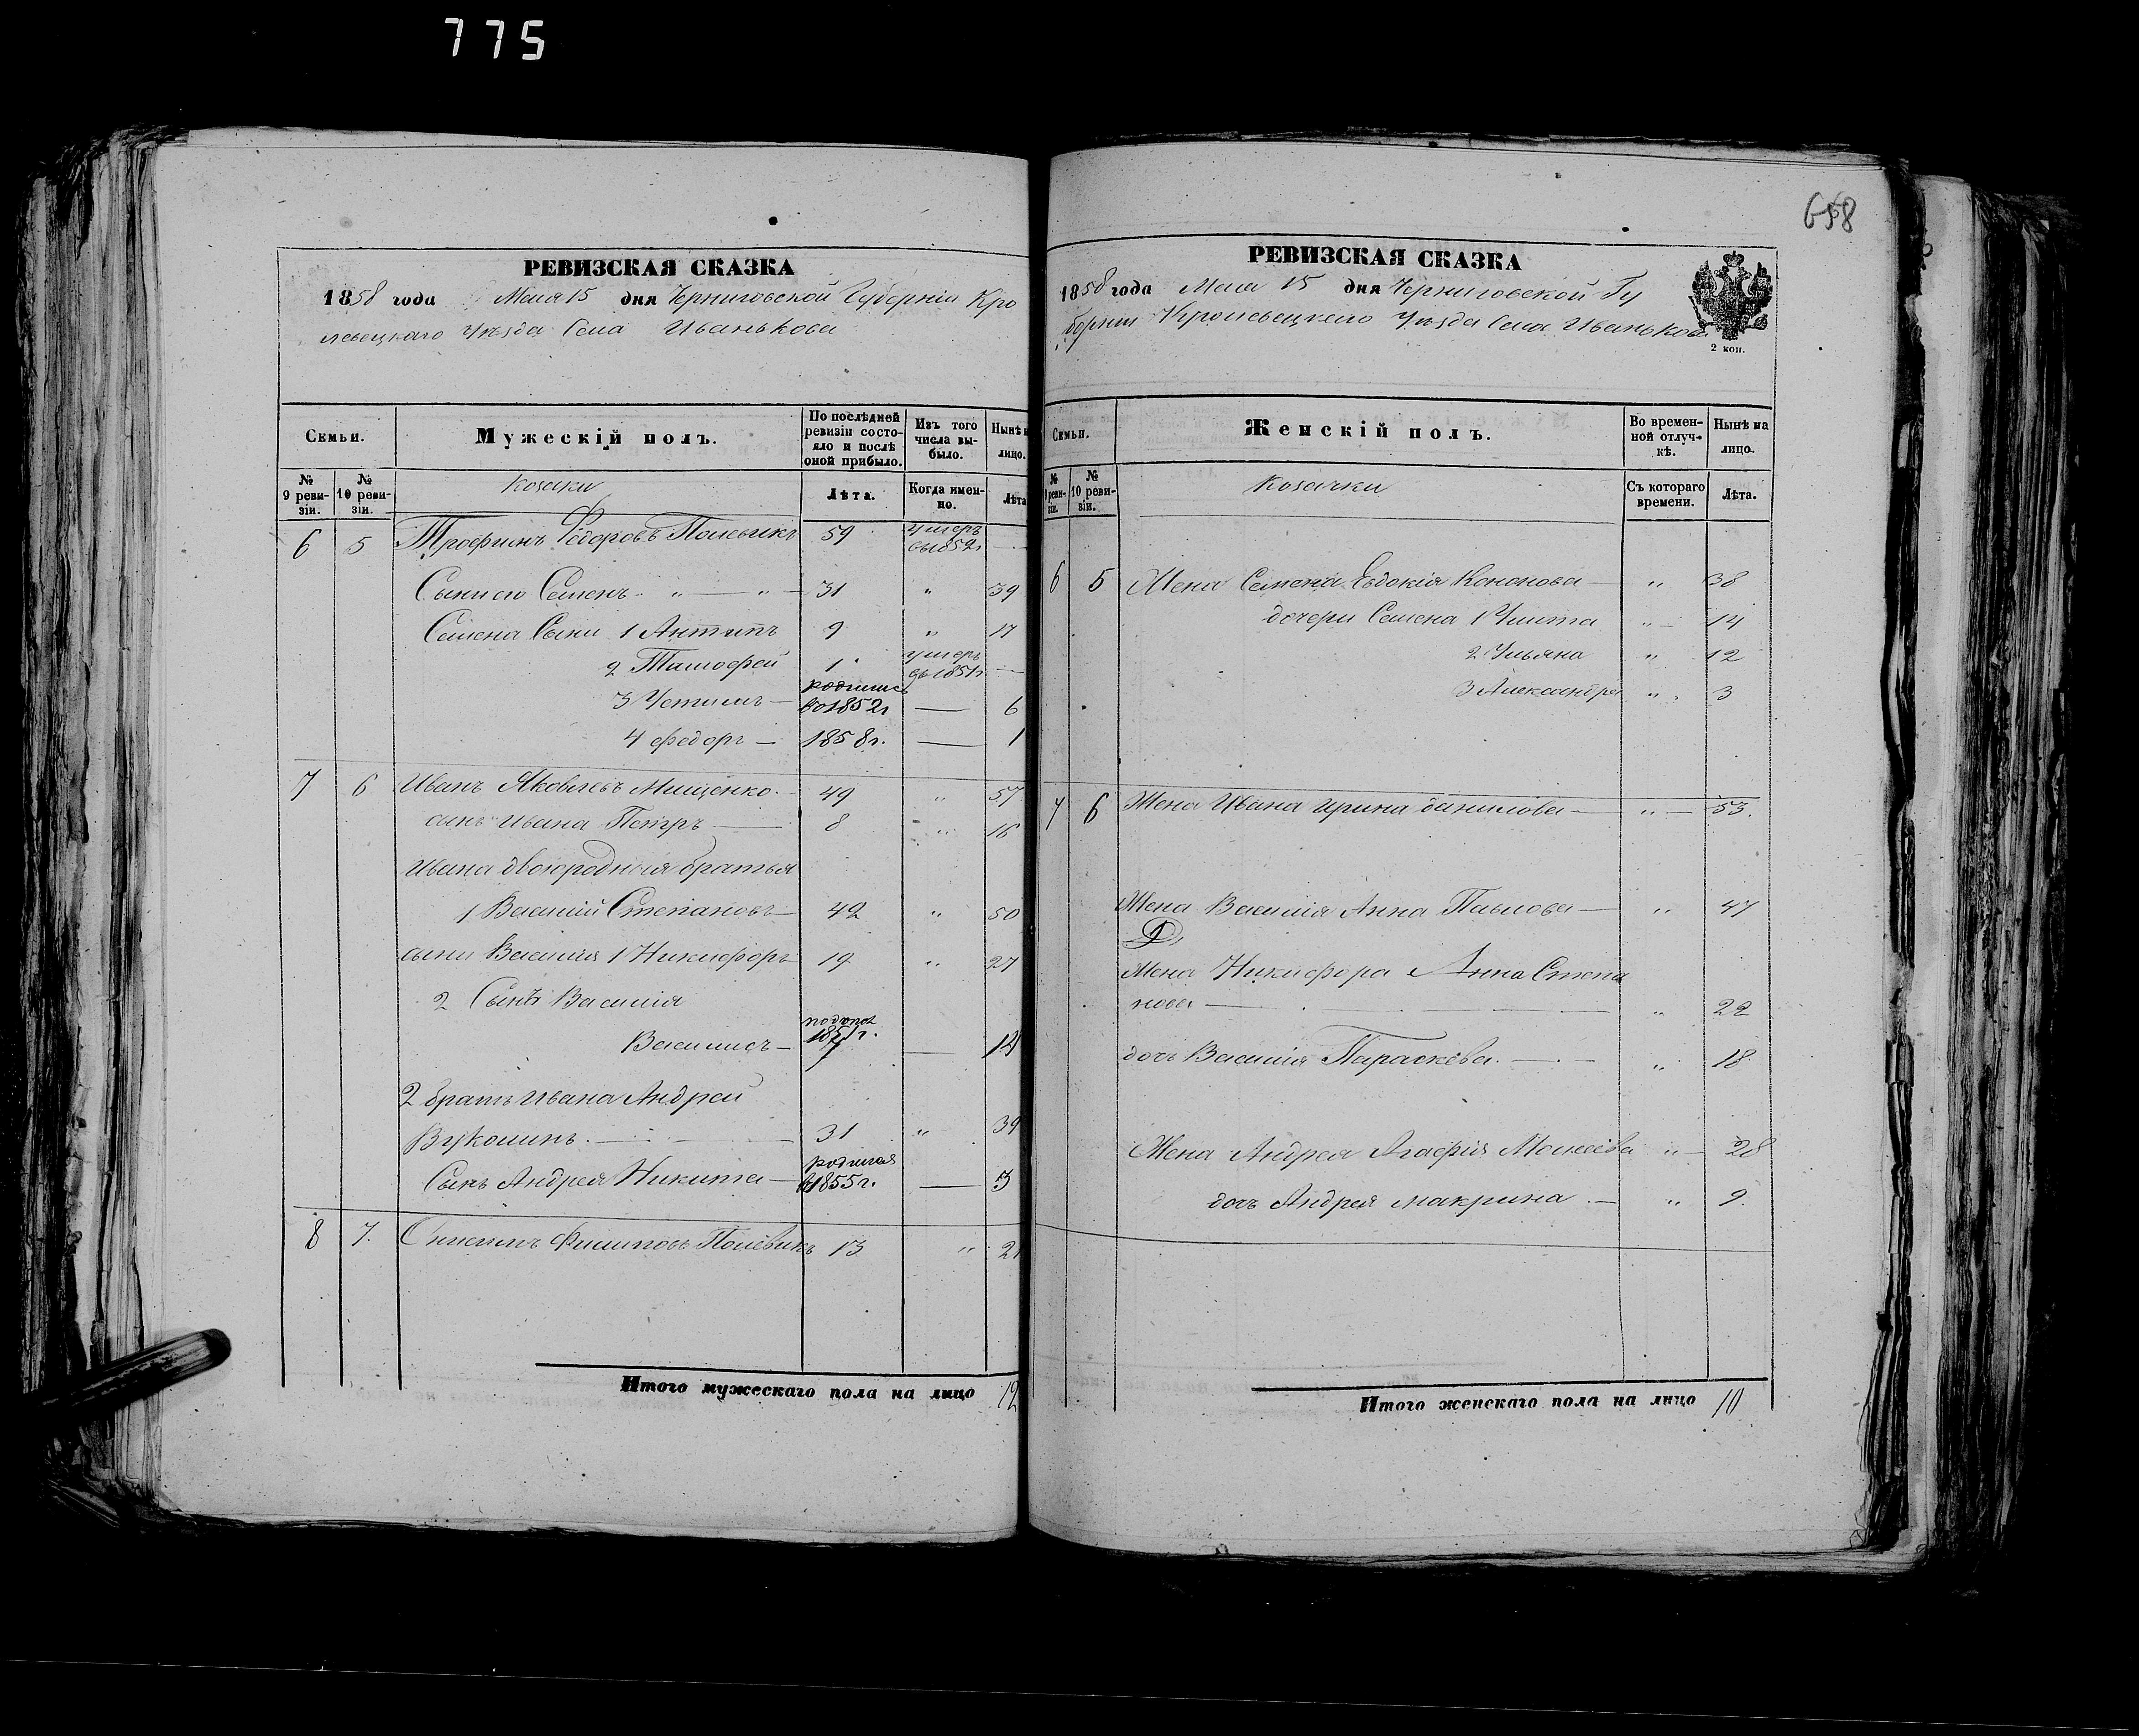 775
658
РЕВИЗСКАЯ СКАЗКА
1858 года Мая 15 дня Черниговской Губерніи Кро
левецкаго Уѣзда Села Иванькова
Семьи.
Мужескій полъ.
По послѣдней ревизіи состояло и послѣ оной прибыло.
Изъ того числа выбыло.
Нынѣ на лицо.
№ 9 ревизіи.
№ 10 ревизіи.
козаки
Лѣта.
Когда именно.
Лѣта
6 5 Трофимъ Федоровъ Полевикъ 59 умеръ въ 1852г —
Сынъ его Семенъ " — " — 31 " 39
Семена Сыни 1 Антипъ 9 " 17
2 Тимофей 1 умеръ въ 1851г —
3 Устимъ — родился во 1852г — 6
4 федоръ — 1858г. — 1
7 6 Иванъ Яковлевъ Мищенко 49 " 57
сынъ Ивана Петръ — 8 " 16
Ивана двоюродния братья
1 Василий Степановъ — 42 " 50
сыни Василия 1 Никифоръ 19 " 27
2 Сынъ Василия
— 14
2 братъ Ивана Андрей
31 " 39
Сынъ Андрея Никита — родился в 1855г. — 3
8 7. Филиповъ Полевикъ 13 " 21
Итого мужескаго пола на лицо 12
РЕВИЗСКАЯ СКАЗКА
1858 года Мая 15 дня Черниговской Гу
берніи Кролевецкаго Уѣзда Села Иванькова
2 коп.
Семьи.
Женскій полъ.
Во временной отлучкѣ.
Нынѣ на лицо.
№ 9 ревизіи.
№ 10 ревизіи.
козачки
Съ котораго времени.
Лѣта.
6 5 Жена Семена Евдокія Кононова — " 38
дочери Семена 1 Улита " 14
2 Ульяна " 12
3 Александра " 3
7 6 Жена Ивана Ирина данилова — " — 53.
Жена Василия Анна Павлова — " 47
Жена Никифора Анна Степа
нова — " 22
дочь Василия Параскева. — " 18
Жена Андрея Агафія Моисеева " — 28
дочь Андрея макрина — " 9.
Итого женскаго пола на лицо 10